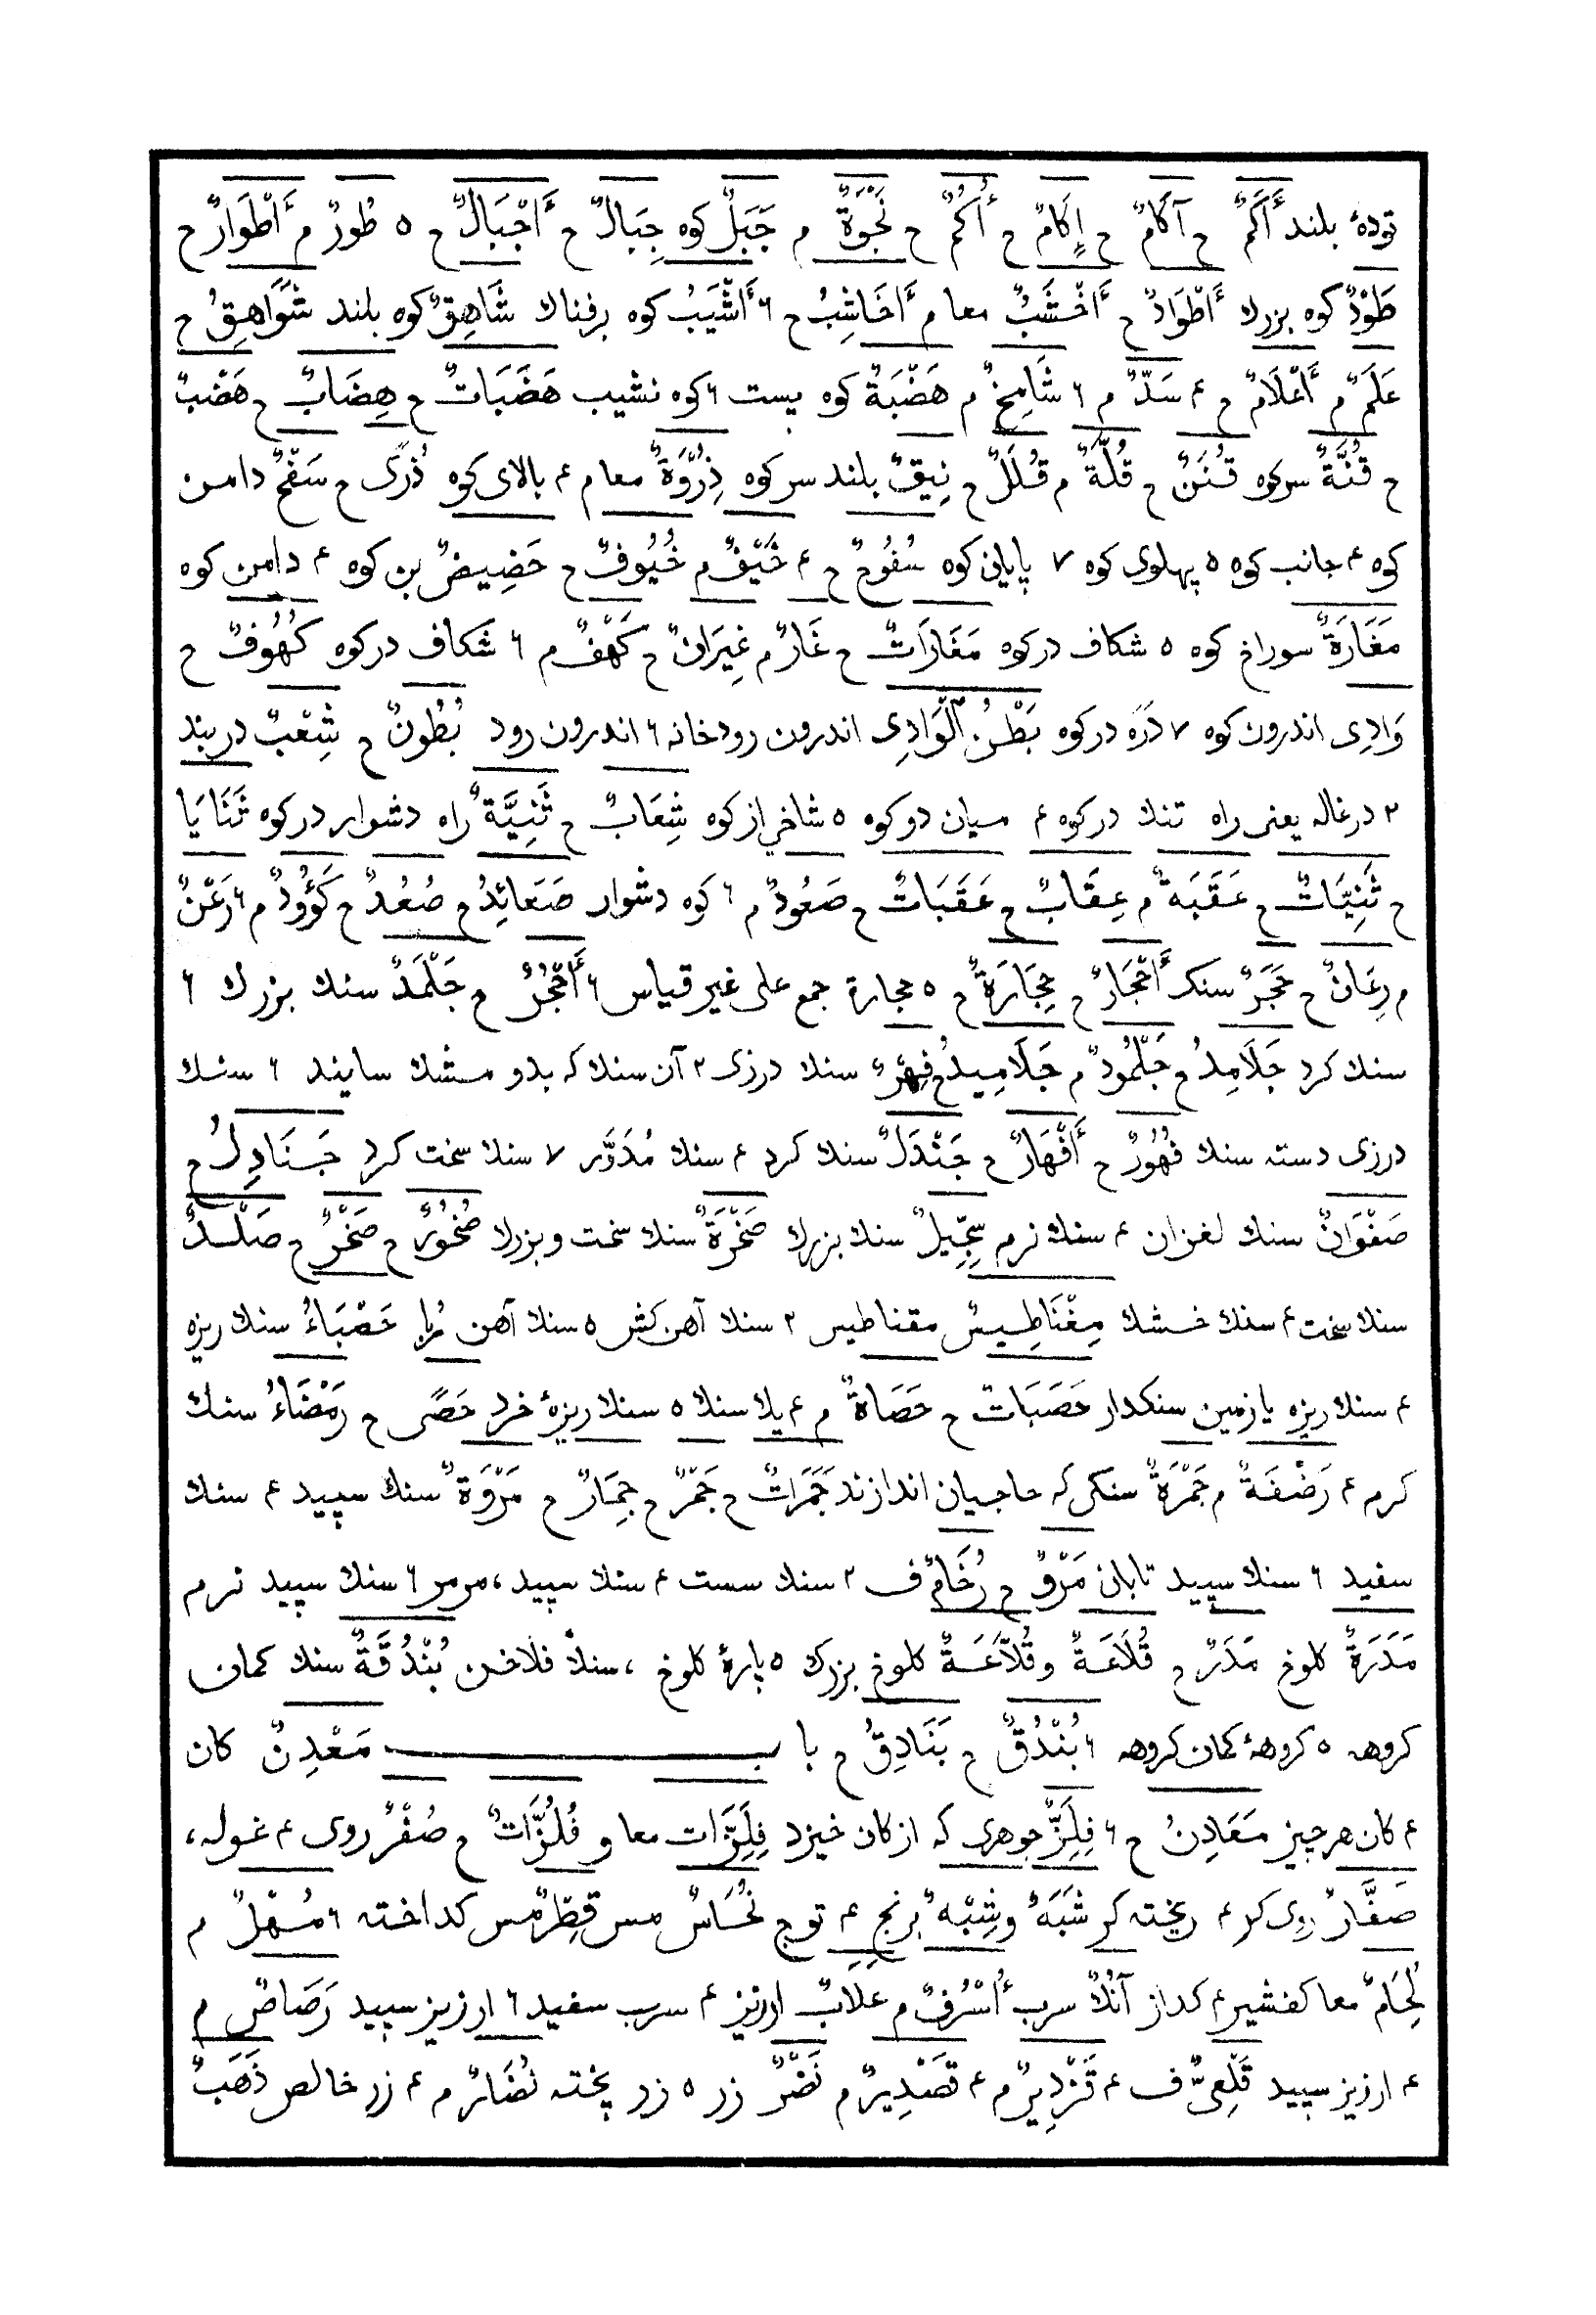 تودهٔ بلند أَكَمٌ ح آكَامٌ ح إِكَامٌ ح أُكُمٌ ح نَجْوَةٌ م جَبَلٌ کوه جِبَالٌ ح أَجْبَالٌ ح ٥ طُورٌ م أَطْوَارٌ ح
طَوْدٌ کوه بزرك أَطْوَادٌ ح أَخْشَبٌ معا م أَخَاشِبُ ح ٦ أَشْيَبُ کوه برفناك شَاهِقٌ کوه بلند شَوَاهِقُ ح
عَلَمٌ م أَعْلَامٌ ح ٤ سَدٌّ م ٦ شَامِخٌ م هَضْبَةٌ کوه پست ٦ کوه نشیب هَضَبَاتٌ ح هِضَابٌ ح هَضْبٌ
ح قُنَّةٌ سرکوه قُنَنٌ ح قُلَّةٌ م قُلَلٌ ح نِيقٌ بلند سر کوه ذِرْوَةٌ معا م ٤ بالای کوه ذُرًى ح سَفْحٌ دامن
کوه ٤ جانب کوه ٥ پهلوی کوه ٧ پایان کوه سُفُوحٌ ح ٤ خَيْفٌ م خُيُوفٌ ح حَضِيضٌ بن کوه ٤ دامن کوه
مَغَارَةٌ سوراخ کوه ٥ شکاف درکوه مَغَارَاتٌ ح غَارٌ م غِيرَانٌ ح كَهْفٌ م ٦ شکاف درکوه كُهُوفٌ ح
وَادِی اندرون کوه ٧ دَرَه درکوه بَطْنُ ٱلْوَادِی اندرون رودخانه ٦ اندرون رود بُطُونٌ ح شِعْبٌ دربند
٢ درغاله یعنی راه تنك درکوه ٤ میان دو کوه ٥ شاخی از کوه شِعَابٌ ح ثَنِيَّةٌ راه دشوار درکوه ثَنَايَا
ح ثَنِيَّاتٌ ح عَقَبَةٌ م عِقَابٌ ح عَقَبَاتٌ ح صَعُودٌ م ٦ کوه دشوار صَعَائِدُ ح صُعُدٌ ح كَؤُودٌ م ٦ رَعْنٌ
م رِعَانٌ ح حَجَرٌ سنك أَحْجَارٌ ح حِجَارَةٌ ح ٥ حجارة جمع علی غیر قیاس ٦ أَحْجُرٌ ح جَلْمَدٌ سنك بزرك ٦
سنك کرد جَلَامِدُ ح جُلْمُودٌ م جَلَامِيدُ ح فِهْرٌ سنك درزی ٢ آن سنك که بدو مشك سایند ٦ سنك
درزی دسته سنك فُهُورٌ ح أَفْهَارٌ ح جَنْدَلٌ سنك کرد ٤ سنك مُدَوَّر ٧ سنك سخت کرد جَنَادِلُ ح
صَفْوَانٌ سنك لغزان ٤ سنك نرم سِجِّيلٌ سنك بزرك صَخْرَةٌ سنك سخت و بزرك صُخُورٌ ح صَخْرٌ ح صَلْدٌ
سنك سخت ٤ سنك خشك مِغْنَاطِيسٌ مقناطیس ٢ سنك آهن کش ٥ سنك آهن رُبا حَصْبَاءُ سنك ریزه
٤ سنك ریزه یا زمین سنکدار حَصَبَاتٌ ح حَصَاةٌ م ٤ یك سنك ٥ سنك ریزهٔ خرد حَصًى ح رَمْضَاءُ سنك
کرم ٤ رَضْفَةٌ م جَمْرَةٌ سنکی که حاجیان اندازند جَمَرَاتٌ ح جَمْرٌ ح جِمَارٌ ح مَرْوَةٌ سنك سپید ٤ سنك
سفید ٦ سنك سپید تابان مَرْوٌ ح رُخَامٌ ف ٢ سنك سست ٤ سنك سپید، مرمر ٦ سنك سپید نرم
مَدَرَةٌ کلوخ مَدَرٌ ح قُلَاعَةٌ و قُلَّاعَةٌ کلوخ بزرك ٥ پارهٔ کلوخ ، سنك فلاخن بُنْدُقَةٌ سنك کمان
کروهه ٥ کروههٔ کمان کروهه ٦ بُنْدُقٌ ح بَنَادِقُ ح باب مَعْدِنٌ کان
٤ کان هر چیز مَعَادِنُ ح ٦ فِلِزٌّ جوهری که از کان خیزد فِلِزَّات معا و فُلُزَّاتٌ ح صُفْرٌ روی ٤ غوله،
صَفَّارٌ روی کر ٤ ریخته کر شَبَهٌ و شِبْهٌ برنج ٤ توج نُحَاسٌ مس قِطْرٌ مس کداخته ٦ مُهْلٌ م
لِحَامٌ معا کفشیر ٤ کداز آنُكٌ سرب أُسْرُفٌ م علابٌ ارزیز ٤ سرب سفید ٦ ارزیز سپید رَصَاصٌ م
٤ ارزیز سپید قَلْعِيٌّ ف ٤ قَزْدِيرٌ م ٤ قَصْدِيرٌ م نَضْرٌ زر ٥ زر پخته نُضَارٌ م ٤ زر خالص ذَهَبٌ